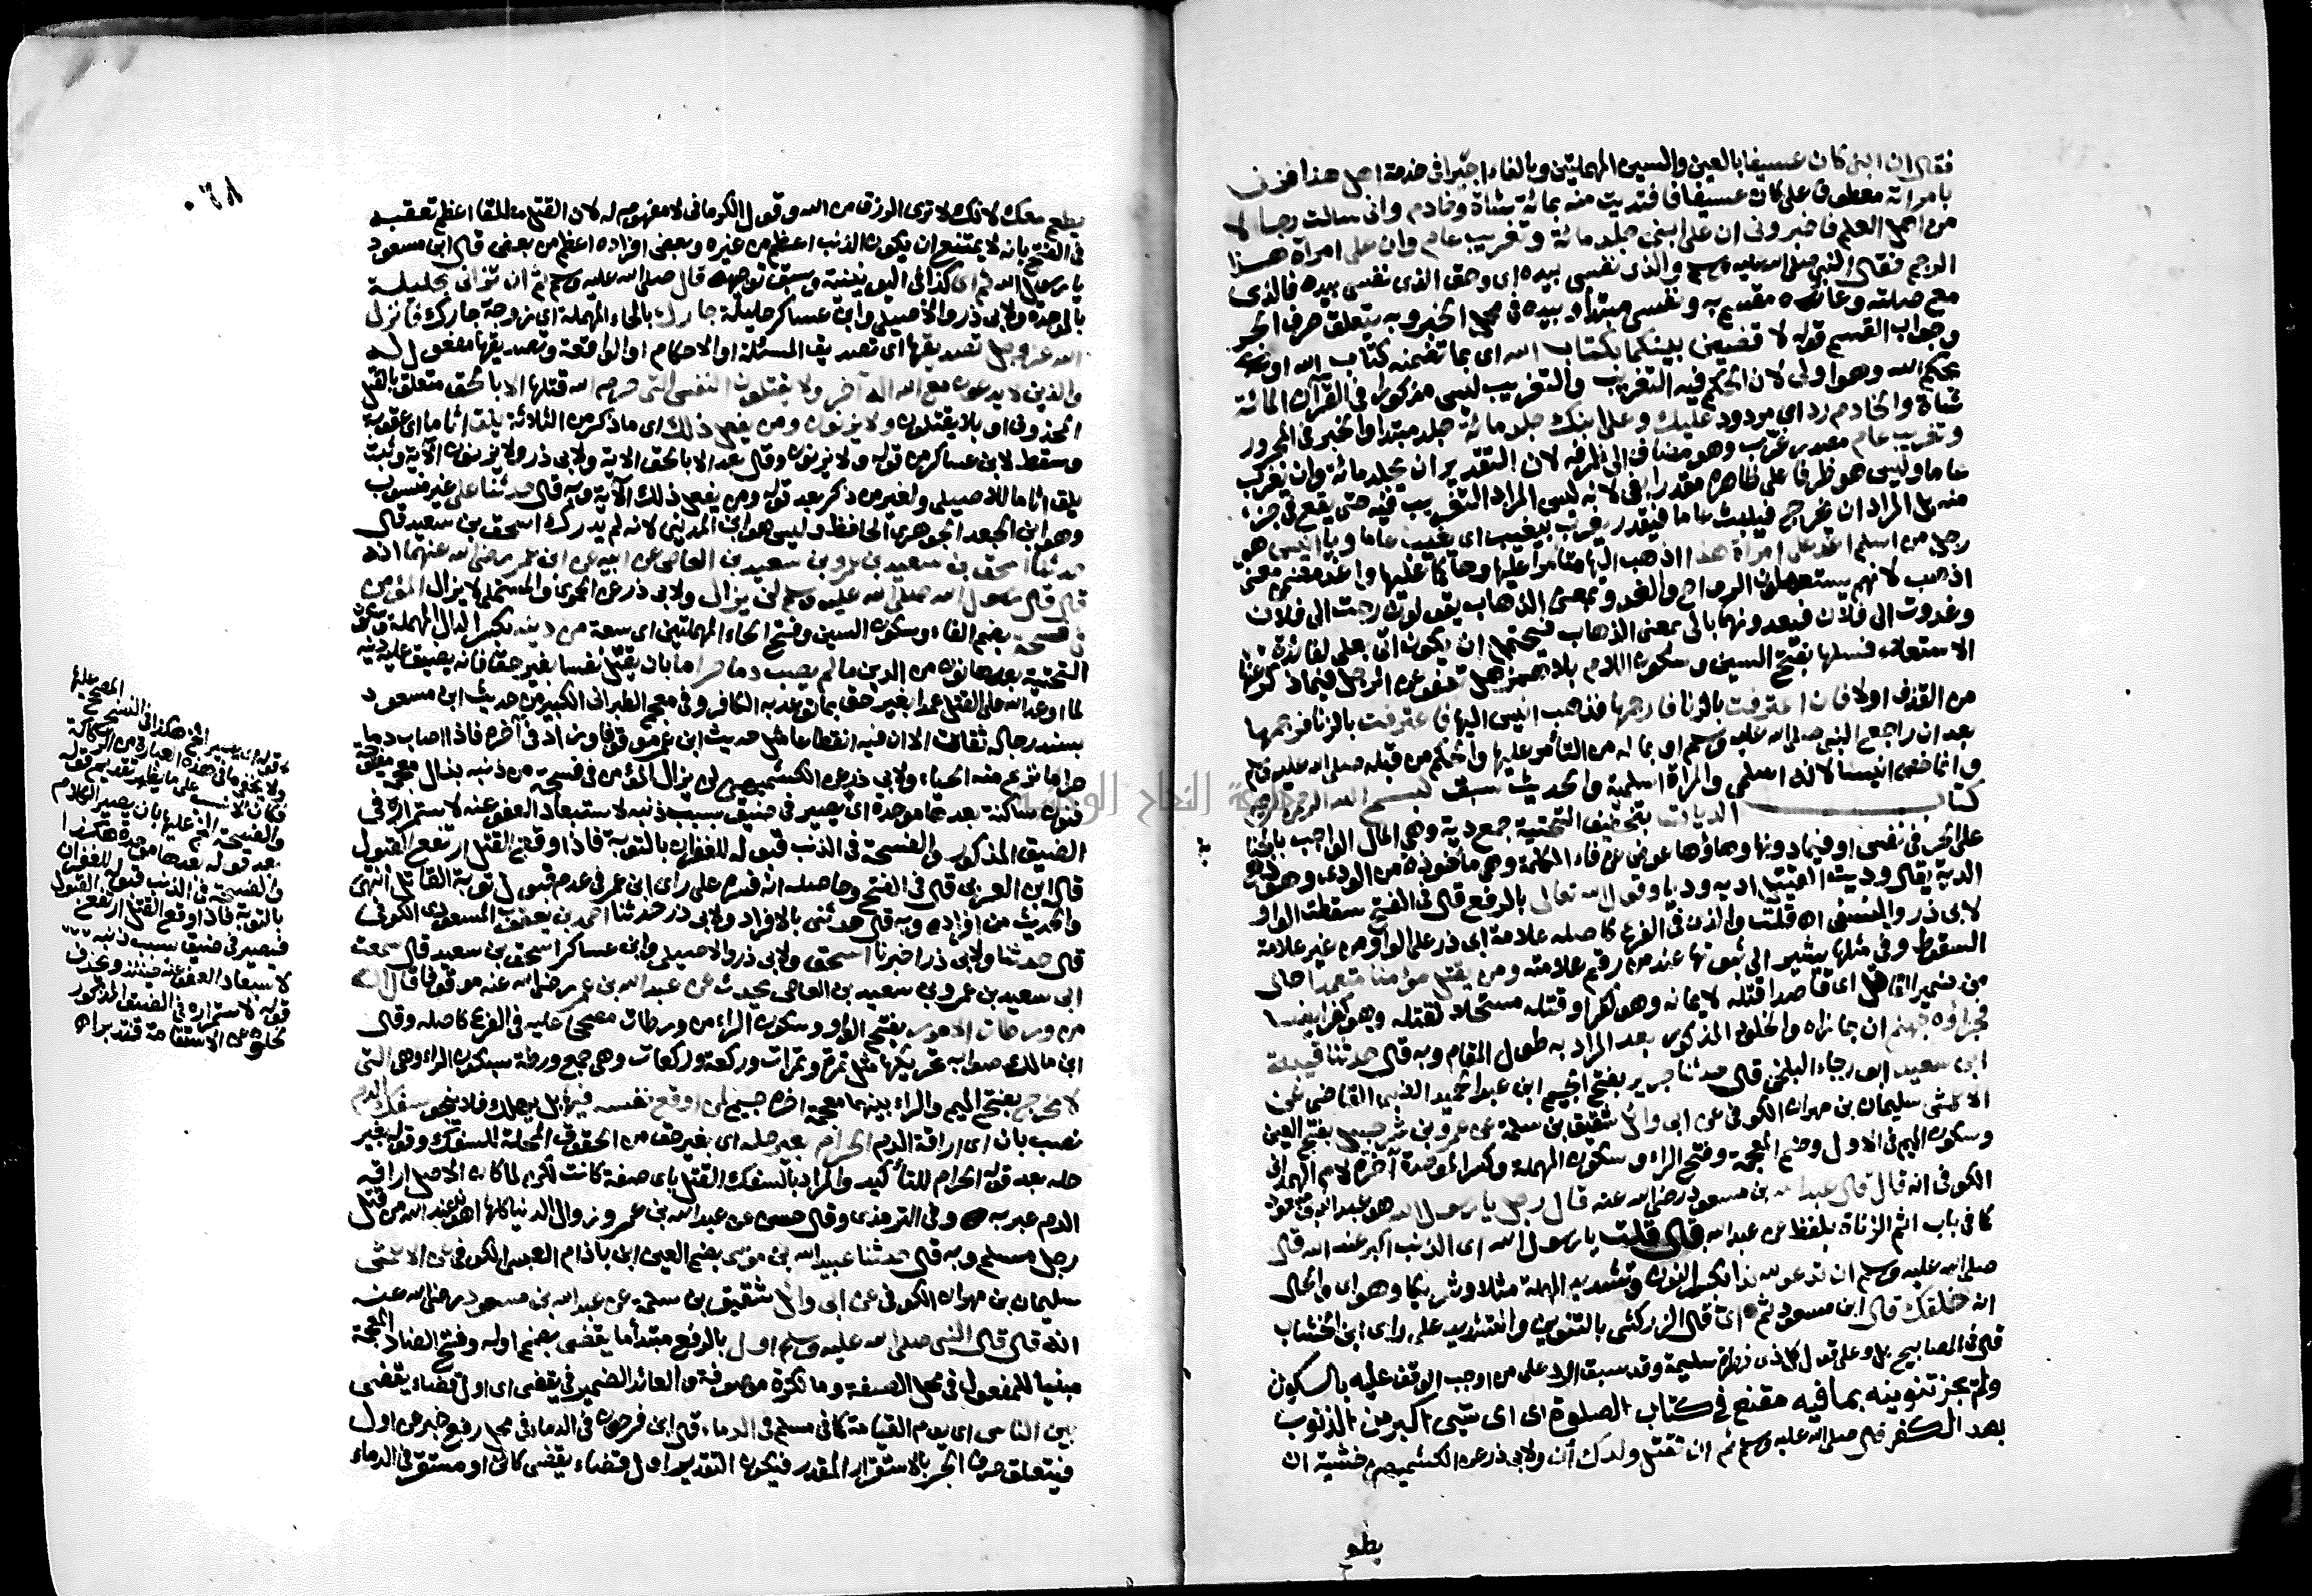 فقال ان ابنى كان عسيفا بالعين والسين المهملتين وبالفاء اجيرا فى خدمة اهل هذا فزنى
بامراته معطوف على كان عسيفا فافتديت منه بمائة شاة وخادم وانى سالت رجالا
من اهل العلم فاخبرونى ان على ابنى جلد مائة وتغريب عام وان على امرأة هذا
الرجم فقال النبى صلى الله عليه وسلم والذى نفسى بيده اى وحق الذى نفسى بيده فالذى
مع صلته وعائده مقسم به ونفسى مبتدأ وبيده فى محل الخبر وبه يتعلق حرف الجر
وجواب القسم قوله لاقضين بينكما بكتاب الله اى بما تضمنه كتاب الله او
بحكم الله وهو اولى لان الحكم فيه التغريب والتغريب ليس مذكورا فى القرآن المائة
شاة والخادم رد اى مردود عليك وعلى ابنك جلد مائة جلد مبتدا والخبر فى المجرور
وتغريب عام مصدر غرب وهو مضاف الى ظرفه لان التقدير ان يجلد مائة وان يغرب
عاما وليس هو ظرفا على ظاهره مقدرا بفى لانه ليس المراد التغريب فيه حتى يقع فى جزء
منه بل المراد ان يخرج فيلبث عاما فيقدر يغرب بيغيب اى يغيب عاما ويا انيس هو
رجل من اسلم اغد على امراة هذا اذهب اليها متامرا عليها وحاكما عليها واغد مضمن معنى
اذهب لانهم يستعملون الرواح والغدو بمعنى الذهاب يقولون رحت الى فلان
وغدوت الى فلان فيعدونهما بالى بمعنى الذهاب فيحتمل ان يكون اتى بعلى لفائدة
الاستعلاء فسلها بفتح السين وسكون اللام بلا همز هل تعفو عن الرجل فيما ذكر عنها
من القذف اولا فان اعترفت بالزنا فارجمها فذهب انيس اليها فاعترفت بالزنا فرجمها
بعد ان راجع النبى صلى الله عليه وسلم او بما له من التأمر عليها والحكم من قبله صلى الله عليه وسلم
وانما خص انيسا لانه اسلمى والمراة اسلمية والحديث سبق بسم الله الرحمن الرحيم
كتاب الديات بتخفيف التحتية جمع دية وهى المال الواجب بالجناية
على الحر فى نفس او فيما دونها وهاؤها عوض عن فاء الكلمة وهى مأخوذة من الودى وهو دفع
الدية يقال وديت القتيل اديه وديا وقول الله تعالى بالرفع قال فى الفتح سقطت الواو
لابى ذر والنسفى اه قلت والذى فى الفرع كاصله علامة ابى ذر على الواو من غير علامة
السقوط وفى مثلها يشير الى ثبوتها عند من رقم علامته ومن يقتل مؤمنا متعمدا حال
من ضمير القاتل اى قاصدا قتله لايمانه وهو كفر او قتله مستحلا لقتله وهو كفر ايضا
فجزاؤه جهنم ان جازاه والخلود المذكور بعد المراد به طول المقام وبه قال حدثنا قتيبة
ابن سعيد ابو رجاء البلخى قال حدثنا جرير بفتح الجيم ابن عبد الحميد الضبى القاضى عن
الاعمش سليمان بن مهران الكوفى عن ابى وائل شقيق بن سلمة عن عمرو بن شرحبيل بفتح العين
وسكون الميم فى الاول وضم المعجمة وفتح الراء وسكون المهملة وكسر الموحدة آخره لام الهمدانى
الكوفى انه قال قال عبد الله بن مسعود رضى الله عنه قال رجل يا رسول الله هو عبد الله بن مسعود
كما فى باب اثم الزناة بلفظ عن عبد الله قال قلت يا رسول الله اى الذنب اكبر عند الله قال
صلى الله عليه وسلم ان تدعو لله ندا بكسر النون وتشديد المهملة مثلا وشريكا وهو اى والحال
انه خلقك قال ابن مسعود ثم اى قال الزركشى بالتنوين والتشديد على راى ابن الخشاب
قال فى المصابيح بل وعلى قول كل ذى فطرة سليمة وقد سبق الرد على من اوجب الوقف عليه بالسكون
ولم يجز تنوينه بما فيه مقنع فى كتاب الصلوة اى اى شئ اكبر من الذنوب
بعد الكفر قال صلى الله عليه وسلم ثم ان تقتل ولدك أن ولابى ذر عن الكشميهنى خشية ان
يطعم
يطعم معك لانك لا ترى الرزق من الله وقول الكرمانى لا مفهوم له لان القتل مطلقا اعظم تعقبه
فى الفتح بانه لا يمتنع ان يكون الذنب اعظم من غيره وبعض افراده اعظم من بعض قال ابن مسعود
يا رسول الله ثم اى كذا فى اليونينية وسبق توجيهه قال صلى الله عليه وسلم ثم ان تزانى بحليلة
بالموحدة ولابى ذر والاصيلى وابن عساكر حليلة جارك بالحاء المهملة اى زوجة جارك فانزل
الله عز وجل تصديقها اى تصديق المسئلة او الاحكام او الواقعة وتصديقها مفعول له
والذين لا يدعون مع الله الها آخر ولا يقتلون النفس التى حرم الله قتلها الا بالحق متعلق بالقتل
المحذوف او بلا يقتلون ولا يزنون ومن يفعل ذلك اى ما ذكر من الثلاثة يلق اثاما اى عقوبة
وسقط لابن عساكر من قوله ولا يزنون وقال بعد الا بالحق الاية ولابى ذر ولا يزنون الآية وثبت
يلق اثاما للاصيلى ولغير من ذكر بعد قوله ومن يفعل ذلك الآية وبه قال حدثنا على غير منسوب
وهو ابن الجعد الجوهرى الحافظ وليس هو ابن المدينى لانه لم يدرك اسحق بن سعيد قال
حدثنا اسحق بن سعيد بن عمرو بن سعيد بن العاص عن ابيه عن ابن عمر رضى الله عنهما انه
قال قال رسول الله صلى الله عليه وسلم لن يزال ولابى ذر عن الحموى والمستملى لا يزال المؤمن
فى فسحة بضم الفاء وسكون السين وفتح الحاء المهملتين اى سعة من دينه بكسر الدال المهملة وسكون
التحتية بعدها نون من الدين ما لم يصب دما حراما بان يقتل نفسا بغير حق فانه يضيق عليه دينه
لما اوعد الله على القتل عمدا بغير حق بما توعد به الكافر وفى معجم الطبرانى الكبير من حديث ابن مسعود
بسند رجاله ثقات الا ان فيه انقطاعا مثل حديث ابن عمر موقوفا وزاد فى آخره فاذا اصاب دما
حراما نزع منه الحياء ولابى ذر عن الكشميهنى لن يزال المؤمن فى فسحة من ذنبه بذال معجمة مفتوحة
فنون ساكنة بعدها موحدة اى يصير فى ضيق بسبب ذنبه لاستبعاد العفو عنه لاستمراره فى
الضيق المذكور والفسحة فى الذنب قبوله للغفران بالتوبة فاذا وقع القتل ارتفع القبول
قال ابن العربى قال فى الفتح وحاصله انه فسره على راى ابن عمر فى عدم قبول توبة القاتل انتهى
والحديث من افراده وبه قال حدثنى بالافراد ولابى ذر حدثنا احمد بن يعقوب المسعودى الكوفى
قال حدثنا ولابى ذر اخبرنا اسحق ولابى ذر والاصيلى وابن عساكر اسحق بن سعيد قال سمعت
ابى سعيد بن عمرو بن سعيد بن العاص يحدث عن عبد الله بن عمر رضى الله عنه موقوفا قال ان
من ورطات الامور بفتح الواو وسكون الراء من ورطات مصححا عليه فى الفرع كاصله وقال
ابن مالك صوابه تحريكها مثل تمرة وتمرات وركعة وركعات وهى جمع ورطة بسكون الراء وهى التى
لا مخرج بفتح الميم والراء بينهما معجمة اخره جيم لمن اوقع نفسه فيها بل يهلك فلا ينجو سفك الدم
نصب بان اى اراقة الدم الحرام بغير حله اى بغير حق من الحقوق المحلة للسفك وقوله بغير
حله بعد قوله الحرام للتأكيد والمراد بالسفك القتل باى صفة كانت لكن لما كان الاصل اراقة
الدم عبر به وفى الترمذى وقال حسن عن عبد الله بن عمرو زوال الدنيا كلها اهون عند الله من قتل
رجل مسلم وبه قال حدثنا عبيد الله بن موسى بضم العين ابن باذام العبسى الكوفى عن الاعمش
سليمان بن مهران الكوفى عن ابى وائل شقيق بن سلمة عن عبد الله بن مسعود رضى الله عنه
انه قال قال النبى صلى الله عليه وسلم اول بالرفع مبتدأ ما يقضى بضم اوله وفتح الضاد المعجمة
مبنيا للمفعول فى محل الصفة وما نكرة موصوفة والعائد الضمير فى يقضى اى اول قضاء يقضى
بين الناس اى يوم القيامة كما فى مسلم فى الدماء قال ابن فرحون فى الدماء فى محل رفع خبر عن اول
فيتعلق حرف الجر بالاستقرار المقدر فيكون التقدير اول قضاء يقضى كائن او مستقر فى الدماء
قوله اى يصير الخ هكذا فى النسخ الصحيحة
ولا يخفى ما فى هذه العبارة من الركاكة
فكان الانسب على ما يظهر تقديم قوله
والفسحة الخ عليها بان يصير الكلام
بعد قوله بعدها موحدة هكذا
والفسحة فى الذنب قبوله للغفران
بالتوبة فاذا وقع القتل ارتفع القبول
فيصير فى ضيق بسبب ذنبه
لاستبعاد العفو عنه حينئذ ويحذف
قوله لاستمراره فى الضيق المذكور
لخلوه عن الاستقامة فتدبر اه